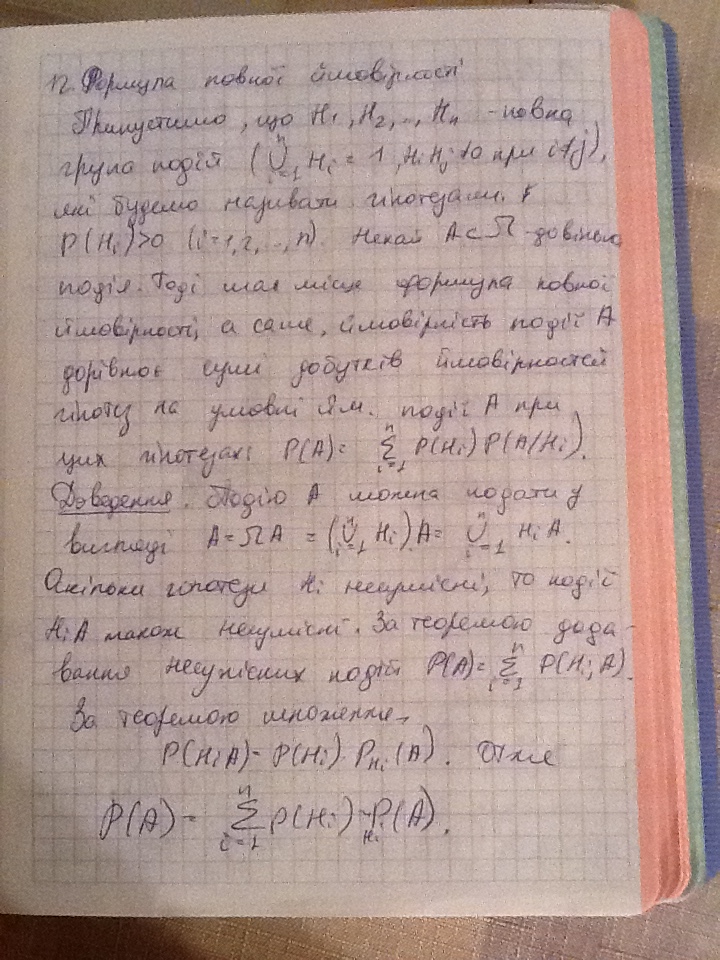 12. Формула повної ймовірності
Припустимо, що H₁, H₂, ..., Hₙ - повна
група подій (⋃ⁿᵢ₌₁ Hᵢ = 1, HᵢHⱼ = 0 при i≠j),
які будемо називати гіпотезами, і
P(Hᵢ)>0 (i=1,2,...,n). Нехай A⊂Ω довільна
подія. Тоді має місце формула повної
ймовірності, а саме, ймовірність події A
дорівнює сумі добутків ймовірностей
гіпотез на умовні йм. події A при
цих гіпотезах: P(A)= ∑ⁿᵢ₌₁ P(Hᵢ)P(A/Hᵢ).
Доведення. Подію A можна подати у
вигляді A = ΩA = (⋃ⁿᵢ₌₁ Hᵢ)A = ⋃ⁿᵢ₌₁ HᵢA.
Оскільки гіпотези Hᵢ несумісні, то події
HᵢA також несумісні. За теоремою дода-
вання несумісних подій P(A)=∑ⁿᵢ₌₁ P(HᵢA).
За теоремою множення
P(HᵢA)=P(Hᵢ)·P_Hᵢ(A). Отже
P(A) = ∑ⁿᵢ₌₁ P(Hᵢ)·P_Hᵢ(A).